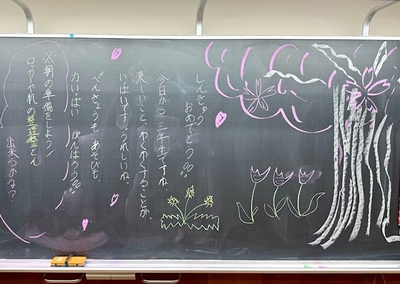 しんきゅう
おめでとう!!
今日から二年生ですね。
楽しいこと、わくわくすることが、
いっぱいです。うれしいね。
べんきょうも あそびも、
力いっぱい がんばろうね!!
朝の準備をしよう!
出来るかな?